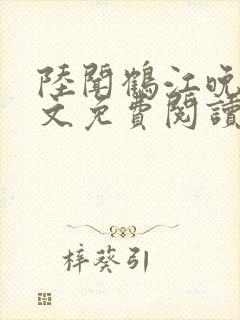 陸聞鶴江晚
文免費閱讀
梓葵引